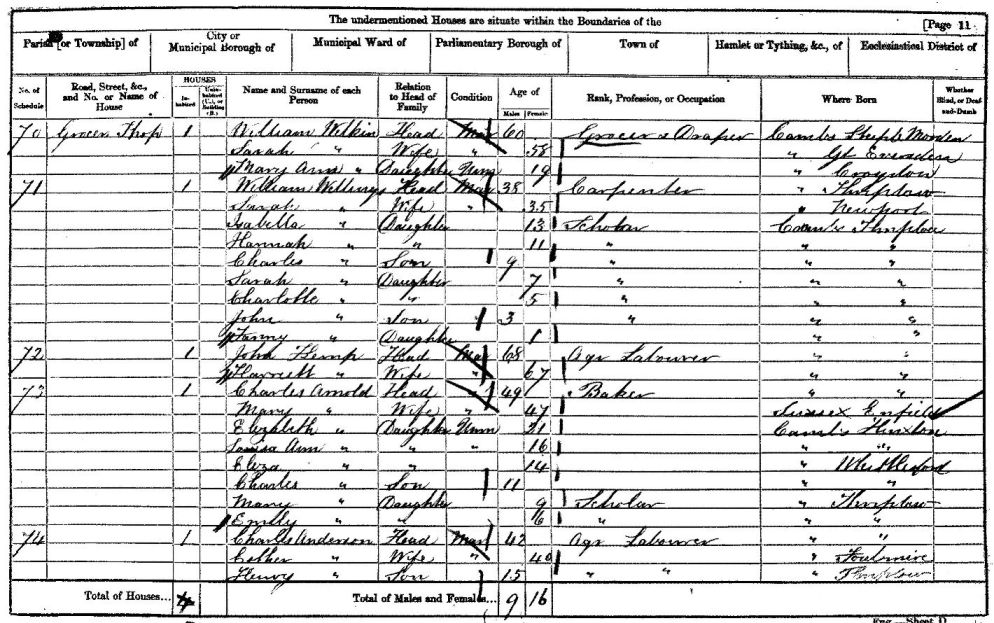 The undermentioned Houses are situate within the Boundaries of the [Page 11
Parish [or Township] of City or Municipal Borough of Municipal Ward of Parliamentary Borough of Town of Hamlet or Tything, &c., of Ecclesiastical District of
No. of Schedule Road, Street, &c., and No. or Name of House HOUSES Inhabited Uninhabited (U.), or Building (B.) Name and Surname of each Person Relation to Head of Family Condition Age of Males Females Rank, Profession, or Occupation Where Born Whether Blind, or Deaf and-Dumb
70 Grocers Shop 1 William Wilkin Head Mar 60 Grocer & Draper Cambs Steeple Morden
Sarah " Wife " 58 " Gt Eversden
Mary Ann " Daughter Unm 19 " Croydon
71 1 William Head Mar 38 Carpenter " Thriplow
Sarah " Wife " 35 " Newport
Isabella " Daughter 13 Scholar Cambs Thriplow
Hannah " " 11 " " "
Charles " Son 9 " " "
Sarah " Daughter 7 " " "
Charlotte " " 5 " " "
John " Son 3 " " "
Fanny " Daughter 1 " "
72 1 John Head Mar 68 Agr Labourer " "
Harriett " Wife " 67 " "
73 1 Charles Arnold Head " 49 Baker " "
Mary " Wife " 47 Enfield
Elizabeth " Daughter Unm 21 Cambs Hinxton
Louisa Ann " " " 16 " "
Eliza " " 14 " Whittlesford
Charles " Son 11 " "
Mary " Daughter 9 Scholar " Thriplow
Emily " " 6 " " "
74 1 Charles Anderson Head Mar 42 Agr Labourer " "
Esther " Wife " 40 " Foulmire
Henry " Son 15 " " " Thriplow
Total of Houses... 4 Total of Males and Females... 9 16
Eng.—Sheet D.